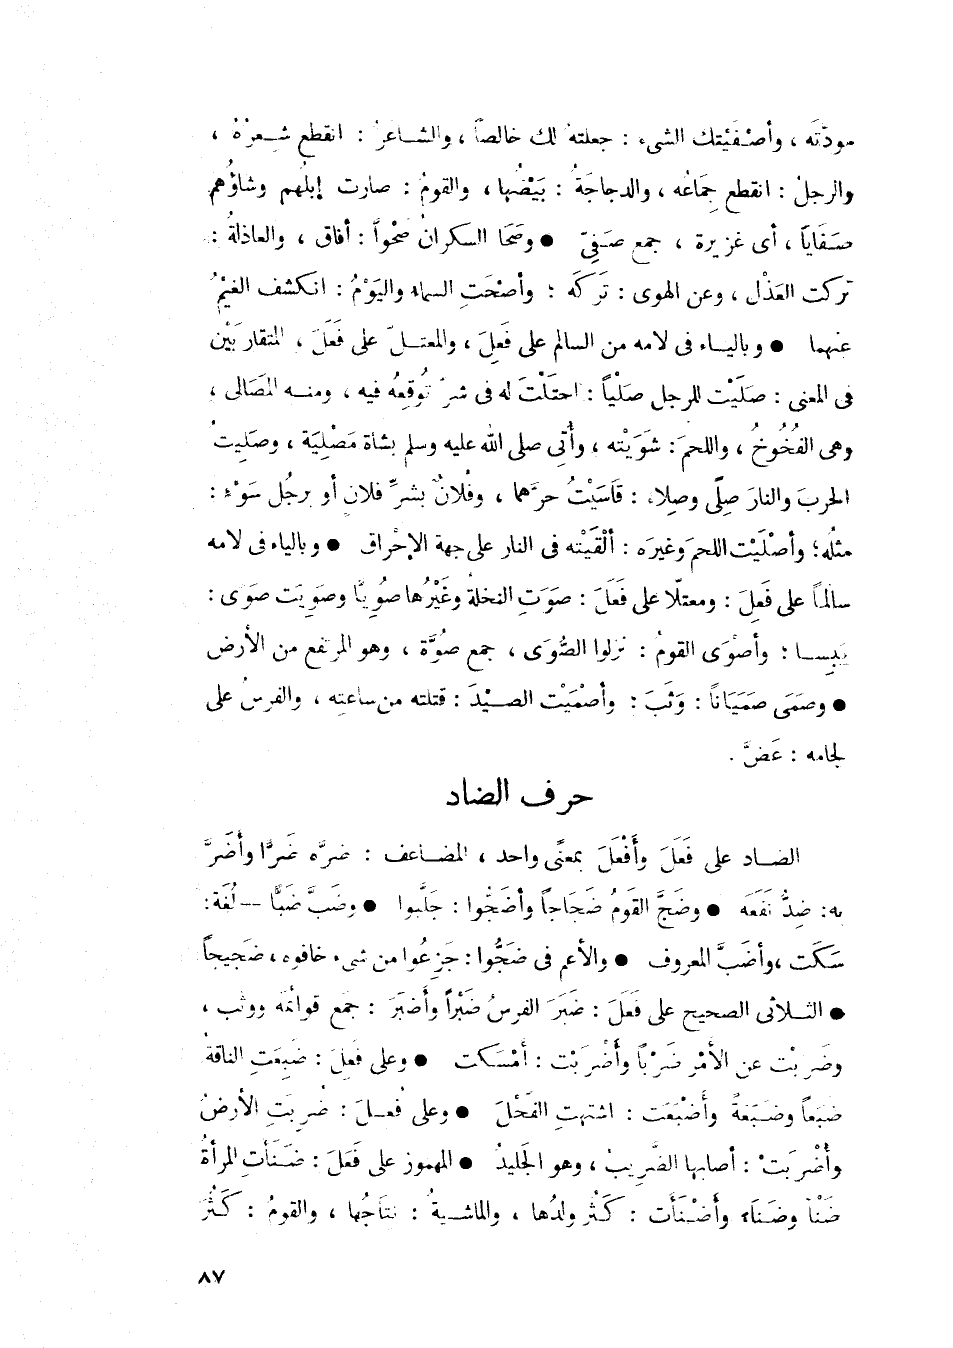 مودّتَه ، وأصْفَيْتك الشىء : جعلته لك خالصاً ، والشاعرُ : انقطع شِعرُهُ ،
والرجلُ : انقطع جِمَاعُه ، والدجاجَةُ : بَيْضُها ، والقومُ : صارت إبلُهم وشاؤُهم
صَفَاياً ، أى غزيرة ، جمع صَفىّ ● وصَحَا السكرانُ صَحْواً : أفاق ، والعاذلةُ :
تركت العَذْل ، وعن الهوى : تَرَكَه ؛ وأصْحَتِ السماء واليَوْمُ : انكشف الغيْمُ
عنهما ● وبالياء فى لامه من السالم على فَعِلَ ، والمعتلّ على فَعَلَ ، المتقاربَيْن
فى المعنى : صَلَيْت للرجل صَلْياً : احتَلْتَ له فى شرّ تُوقِعُه فيه ، ومنه المَصَالى ،
وهى الفُخُوخُ ، واللحمَ : شَوَيْته ، وأُتِى صلى الله عليه وسلم بشاة مَصْلِيَة ، وصَلِيتُ
الحربَ والنارَ صِلًى وصِلاء : قَاسَيْتُ حرَّهما ، وفُلانٌ بشرِّ فلانٍ أو برجُل سَوْءٍ :
مثلُه ؛ وأصْلَيْت اللحمَ وغيرَه : ألْقَيْته فى النار على جهة الإحْراق ● وبالياء فى لامه
سالماً على فَعِلَ : ومعتلّا على فَعَلَ : صَوَتِ النخلةُ وغَيْرُها صُوِيًّا وصَوِيَت صَوًى :
يَبِسا ؛ وأصْوَى القومُ : نزلوا الصُّوَى ، جمع صُوَّة ، وهو المرتفع من الأرض
● وصَمَى صَمَيَاناً : وَثَبَ : وأصْمَيْت الصيْدَ : قتلته من ساعته ، والفرسُ على
لجامه : عَضَّ .
حرف الضاد
الضاد على فَعَلَ وأَفْعَلَ بمعنًى واحد ، المضاعف : ضرَّه ضَرًّا وأضَرَّ
به : ضِدُّ نَفَعَه ● وضَجَّ القَومُ ضَجَاجاً وأضَجُّوا : جَلَّبوا ● وضَبَّ ضَبًّا -- لُغَة :
سَكَت ، وأضَبَّ المعروف ● والأعم فى ضَجُّوا : جَزِعُوا من شىء خافوه ، ضَجيجاً
● الثلاثى الصحيح على فَعَلَ : ضَبَرَ الفرسُ ضَبْراً وأَضبَرَ : جمع قوائمَه ووثب ،
وضَرَبْت عن الأمْرِ ضَرْباً وأَضْرَبْت : أمْسَكت ● وعلى فَعِلَ : ضَبِعَتِ الناقةُ
ضَبَعاً وضَبَعَةً وأَضْبَعَت : اشتهتِ الفَحْلَ ● وعلى فُعِلَ : ضُرِبَتِ الأرضُ
وأُضْرِبَتْ : أصابها الضَّريبُ ، وهو الجَليدُ ● المهموز على فَعَلَ : ضَنَأتِ المرأةُ
ضَنْأً وضَنَاء وأَضْنَأَت : كَثُر ولدُها ، والماشيةُ : نتاجُها ، والقومُ : كَثُرَ
٨٧